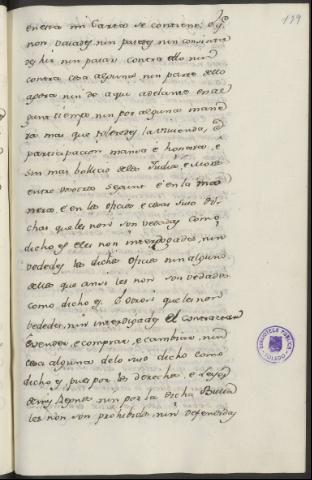 en esta mi Carta se contiene, e q.e
non vaiades, nin pasedes nin consintades
ir, nin pasar contra ello nin
contra cosa alguna, nin parte dello
agora nin de aqui adelante en al
gun tiempo nin por alguna mane
ra mas que toleredes la vivienda, e
participacion mansa e honesta, e
sin mal bollicio de los Judios, e Moros
entre vosotros segunt e en la ma
nera, e en los oficios e cosas suso di
chas que les non son vedadas como
dicho es e les non interdigades, nin
vededes los dichos oficios nin alguno
dellos que ansi les non son vedados
como dicho es. Otrosi que les non
vededes, nin interdigades el contractar
e vender, e comprar, e cambiar, nin
cosa alguna de lo suso dicho como
dicho es, pues por los derechos, e Leyes
de mis Regnos nin por la dicha Bulla
les non son prohibidas nin defendidas
199
BIBLIOTECA PUBLICA
TOLEDO